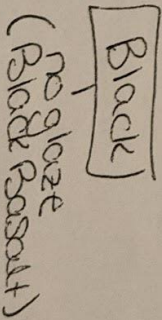 Black
no glaze
(Black Basalt)